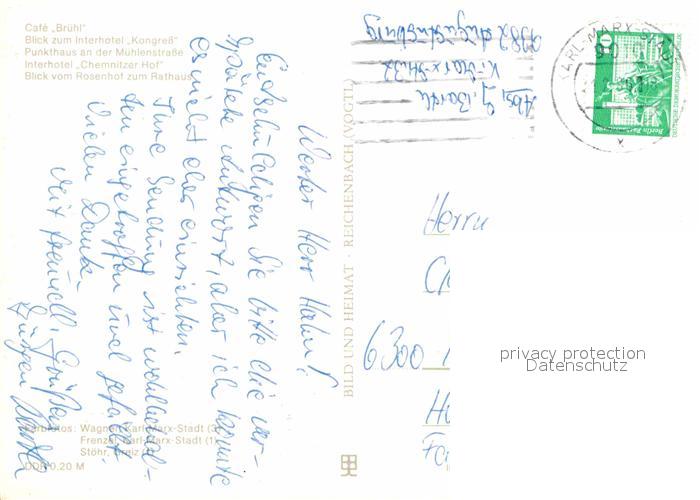 Café „Brühl"
Blick zum Interhotel „Kongreß"
Punkthaus an der Mühlenstraße
Interhotel „Chemnitzer Hof"
Blick vom Rosenhof zum Rathaus
Werter Herr Hahn!
Entschuldigen Sie bitte die ver-
spätete Antwort, aber ich konnte
es nicht eher einrichten.
Ihre Sendung ist wohlbehal-
ten eingetroffen und gefällt.
Vielen Dank.
Mit freundl. Grüßen
Jürgen
Farbfotos: Wagner, Karl-Marx-Stadt (3)
Frenzel, Karl-Marx-Stadt (1)
Stöhr, Greiz (1)
DDR 0,20 M
BILD UND HEIMAT · REICHENBACH (VOGTL)
Abs. J.
K.-Marx-Str. 32
9382 Augustusburg
KARL-MARX-STADT
10
DDR
Herrn
6300
privacy protection
Datenschutz